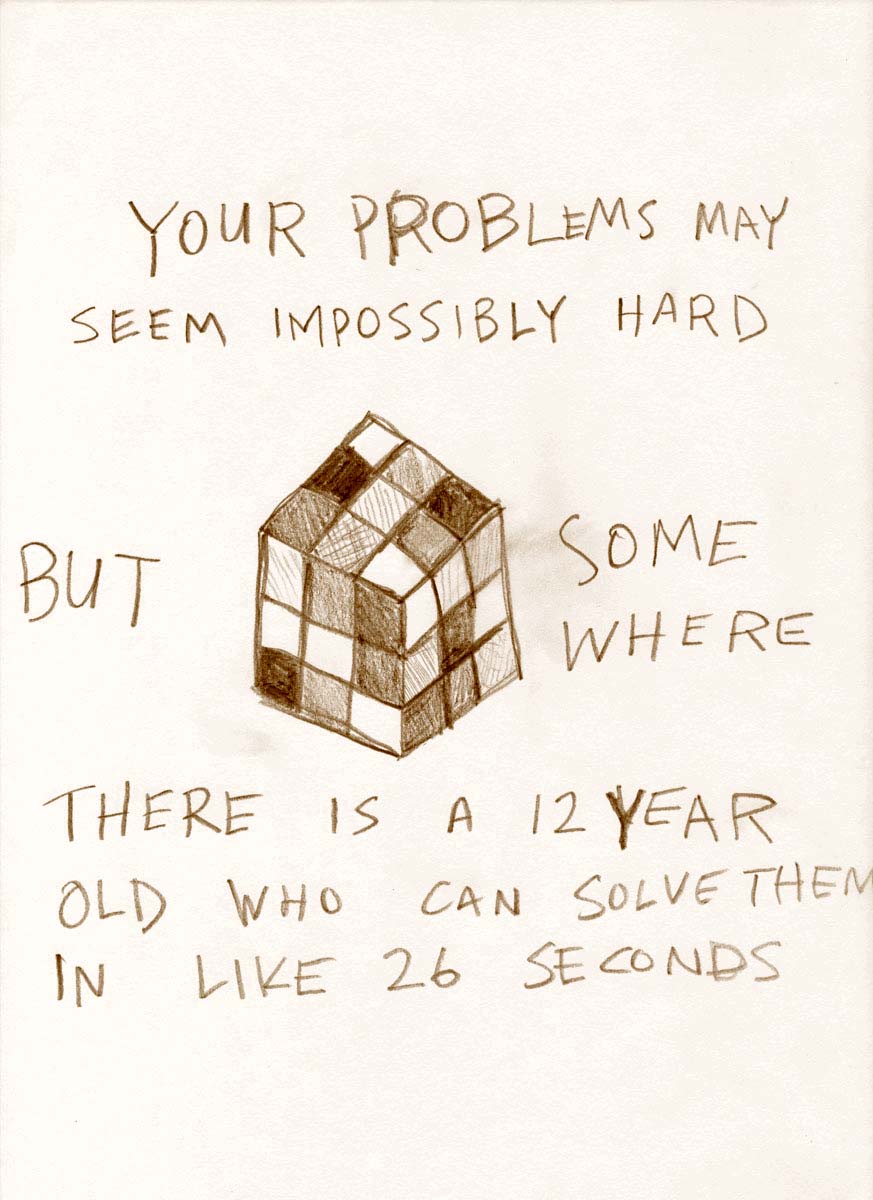 YOUR PROBLEMS MAY
SEEM IMPOSSIBLY HARD
BUT
SOME
WHERE
THERE IS A 12 YEAR
OLD WHO CAN SOLVE THEM
IN LIKE 26 SECONDS